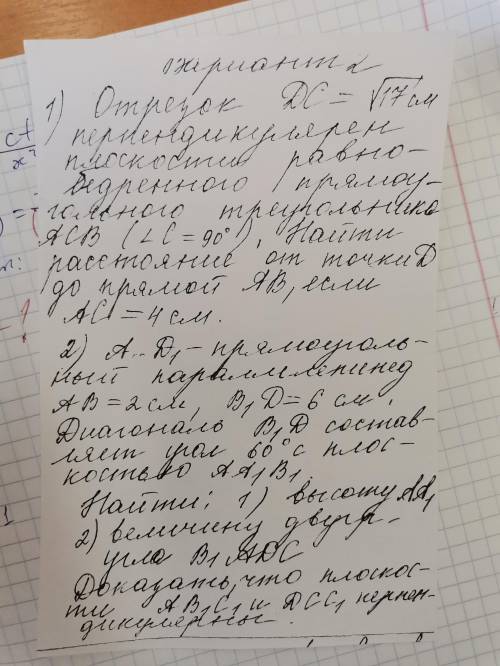 вариант 2
1) Отрезок DC = √17 см
перпендикулярен
плоскости равно-
бедренного прямоу-
гольного треугольника
ACB (∠C = 90°). Найти
расстояние от точки D
до прямой AB, если
AC = 4 см.
2) A..D₁ - прямоуголь-
ный параллелепипед
AB = 2 см, B₁D = 6 см.
Диагональ B₁D состав-
ляет угол 60° с плос-
костью AA₁B₁.
Найти: 1) высоту AA₁
2) величину двугр.
угла B₁ADC
Доказать, что плоскос-
ти AB₁C₁ и DCC₁ перпен-
дикулярны.